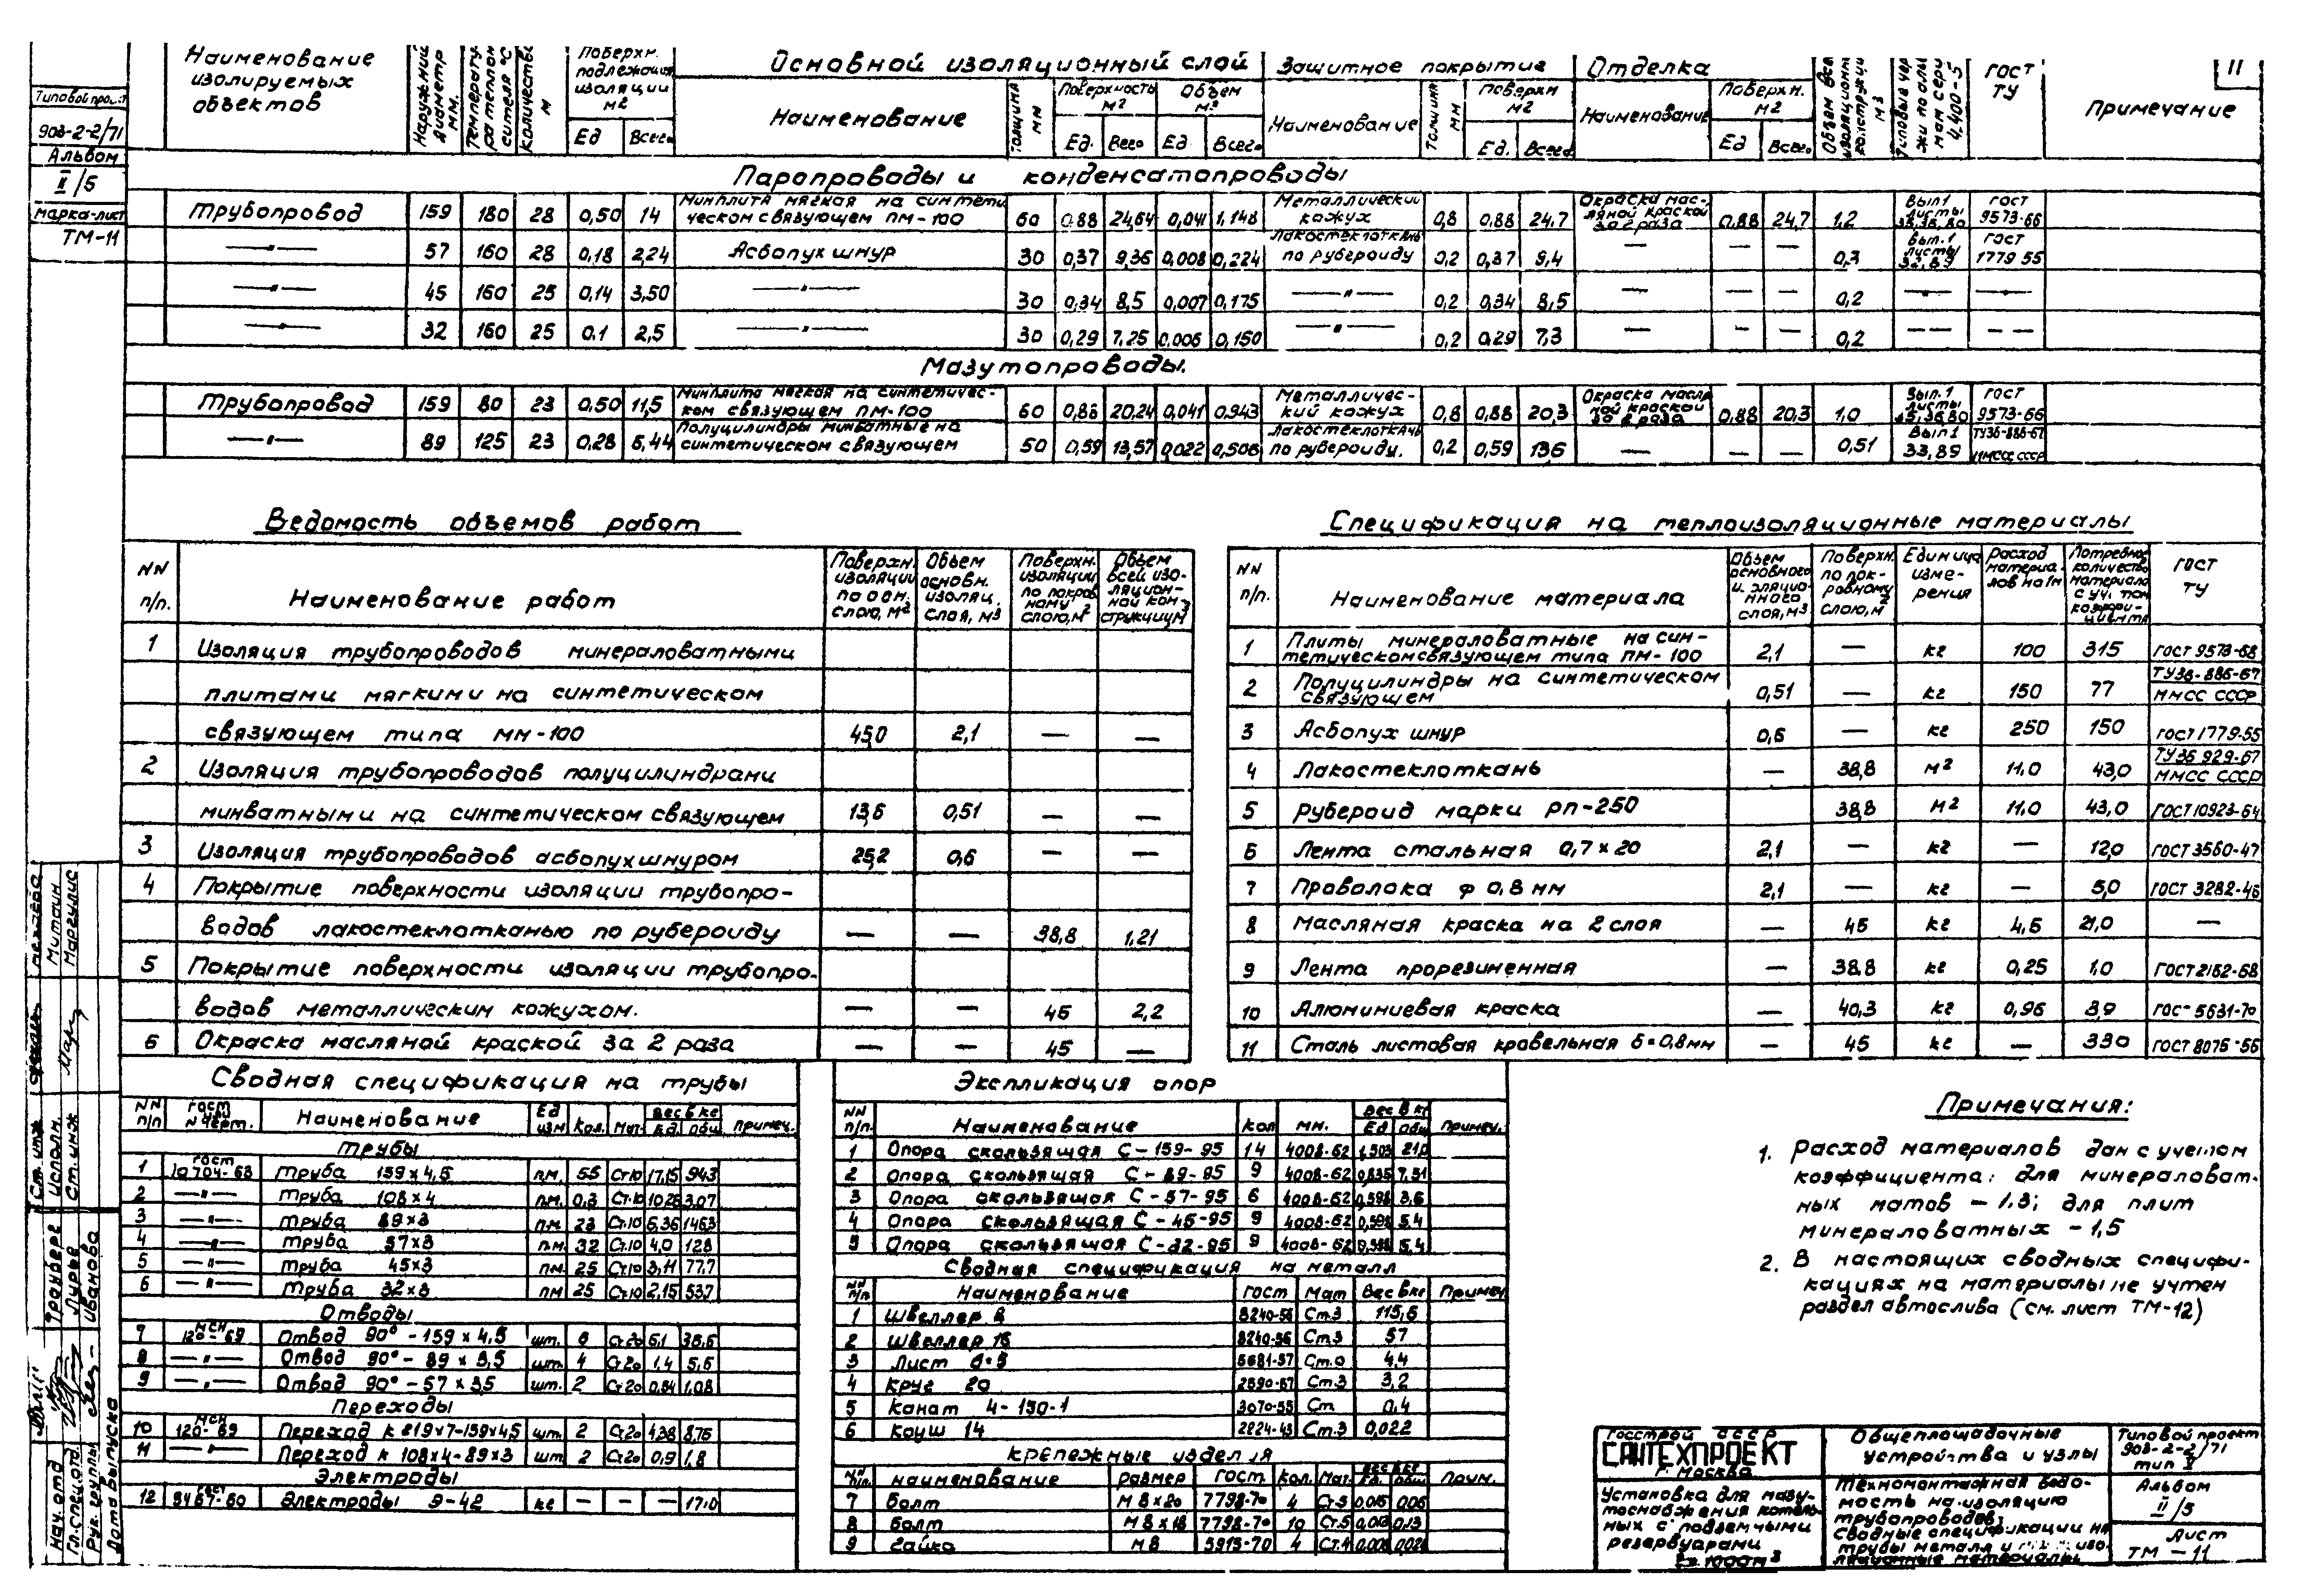 Наименование изолируемых объектов
Наружний диаметр мм.
Количество м
Поверхн. подлежащая изоляции м2
Ед Всего
Основной изоляционный слой
Наименование
Толщина мм
Поверхность м2
Ед. Всего
Объем м3
Ед. Всего
Защитное покрытие
Наименование
Толщина мм
Поверхн м2
Ед. Всего
Отделка
Наименование
Поверхн. м2
Ед Всего
ГОСТ ТУ
Примечание
11
903-2-2/71
Альбом
II/5
марка-лист
ТМ-11
Паропроводы и конденсатопроводы
Трубопровод 159 180 28 0,50 14 Минплита мягкая на синтетическом связующем ПМ-100 60 0,88 24,64 0,041 1,148 Металлический кожух 0,8 0,88 24,7 Окраска масляной краской за 2 раза 0,88 24,7 1,2 Вып.1 листы ГОСТ 9573-66
—"— 57 160 28 0,18 2,24 Асбопухшнур 30 0,37 9,36 0,008 0,224 Лакостеклоткань по рубероиду 0,2 0,37 9,4 — — — 0,3 Вып.1 листы 32,89 ГОСТ 1779 55
—"— 45 160 25 0,14 3,50 —"— 30 0,34 8,5 0,007 0,175 —"— 0,2 0,34 8,5 — — — 0,2 —"— —"—
—"— 32 160 25 0,1 2,5 —"— 30 0,29 7,25 0,006 0,150 —"— 0,2 0,29 7,3 — — — 0,2 — — — —
Мазутопроводы.
Трубопровод 159 80 23 0,50 11,5 Минплита мягкая на синтетическом связующем ПМ-100 60 0,88 20,24 0,041 0,943 Металлический кожух 0,8 0,88 20,3 Окраска масляной краской за 2 раза 0,88 20,3 1,0 Вып.1 листы ГОСТ 9573-66
—"— 89 125 23 0,28 6,44 Полуцилиндры минватные на синтетическом связующем 50 0,59 13,57 0,022 0,506 Лакостеклоткань по рубероиду. 0,2 0,59 13,6 — — — 0,51 Вып1 33,89 ТУ36-886-67 ММСС СССР
Ведомость объемов работ
NN п/п. Наименование работ Поверхн. изоляции по осн. слою, м2 Объем основн. изоляц. слоя, м3 Поверхн. изоляции по покровному слою, м2 Объем всей изоляционной конструкции м3
1 Изоляция трубопроводов минераловатными
плитами мягкими на синтетическом
связующем типа ММ-100 45,0 2,1 — —
2 Изоляция трубопроводов полуцилиндрами
минватными на синтетическом связующем 13,6 0,51 — —
3 Изоляция трубопроводов асбопухшнуром 25,2 0,6 — —
4 Покрытие поверхности изоляции трубопро-
водов лакостеклотканью по рубероиду — — 38,8 1,21
5 Покрытие поверхности изоляции трубопро-
водов металлическим кожухом. — — 45 2,2
6 Окраска масляной краской за 2 раза — — 45 —
Спецификация на теплоизоляционные материалы
NN п/п. Наименование материала Объем основного изоляционного слоя, м3 Поверхн. по покровному слою, м2 Единица измерения Расход материалов на 1м Потребное количество материала с уч. том коэффициента ГОСТ ТУ
1 Плиты минераловатные на синтетическом связующем типа ПМ-100 2,1 — кг 100 315 ГОСТ 9573-68
2 Полуцилиндры на синтетическом связующем 0,51 — кг 150 77 ТУ36-886-67 ММСС СССР
3 Асбопух шнур 0,6 — кг 250 150 ГОСТ 1779-55
4 Лакостеклоткань — 38,8 м2 11,0 43,0 ТУ36 929-67 ММСС СССР
5 Рубероид марки РП-250 38,8 м2 11,0 43,0 ГОСТ 10923-64
6 Лента стальная 0,7×20 2,1 — кг — 12,0 ГОСТ 3560-47
7 Проволока ф 0,8 мм 2,1 — кг — 5,0 ГОСТ 3282-46
8 Масляная краска на 2 слоя — 45 кг 4,6 21,0 —
9 Лента прорезиненная — 38,8 кг 0,25 1,0 ГОСТ 2162-68
10 Алюминиевая краска — 40,3 кг 0,96 39 ГОСТ 5631-70
11 Сталь листовая кровельная δ=0,8мм — 45 кг — 330 ГОСТ 8075-56
Сводная спецификация на трубы
NN п/п ГОСТ или N черт. Наименование Ед изм Кол. Мат. Вес в кг Ед. Общ. Примеч.
Трубы
1 ГОСТ 10704-63 Труба 159×4,5 п.м. 55 Ст10 17,15 943
2 —"— Труба 108×4 п.м. 0,3 Ст.10 10,26 3,07
3 —"— Труба 89×3 п.м. 23 Ст.10 6,36 146,3
4 —"— Труба 57×3 п.м. 32 Ст.10 4,0 128
5 —"— Труба 45×3 п.м. 25 Ст10 3,11 77,7
6 —"— Труба 32×3 п.м 25 Ст10 2,15 53,7
Отводы
7 МСН 120-69 Отвод 90° - 159×4,5 шт. 6 Ст20 6,1 36,6
8 —"— Отвод 90° - 89×3,5 шт. 4 Ст20 1,4 5,6
9 —"— Отвод 90° - 57×3,5 шт. 2 Ст20 0,54 1,08
Переходы
10 МСН 120-69 Переход К 219×7-159×4,5 шт. 2 Ст20 4,38 8,76
11 —"— Переход К 108×4-89×3 шт 2 Ст20 0,9 1,8
Электроды
12 ГОСТ 9467-60 Электроды Э-42 кг — — — 17,0
Экспликация опор
NN п/п. Наименование Кол МН. Вес в кг Ед Общ Примеч.
1 Опора скользящая С-159-95 14 4008-62 1,503 21,0
2 Опора скользящая С-89-95 9 4008-62 0,835 7,51
3 Опора скользящая С-57-95 6 4008-62 0,598 3,6
4 Опора скользящая С-45-95 9 4008-62 0,598 5,4
5 Опора скользящая С-32-95 9 4008-62 0,598 5,4
Сводная спецификация на металл
NN п/п. Наименование ГОСТ Мат Вес в кг Примеч
1 Швеллер 8 8240-56 Ст.3 115,6
2 Швеллер 16 8240-56 Ст.3 57
3 Лист δ=5 5681-57 Ст.0 4,4
4 Круг 20 2590-57 Ст.3 3,2
5 Канат 4-150-1 3070-55 Ст 0,4
6 Коуш 14 2224-43 Ст.3 0,022
Крепежные изделия
NN п/п. Наименование Размер ГОСТ Кол. Мат. Вес в кг Прим.
7 Болт М 8×20 7798-70 4 Ст.5 0,015 0,06
8 Болт М 8×18 7798-70 10 Ст.5 0,013 0,13
9 Гайка М 8 5915-70 4
Примечания:
1. Расход материалов дан с учетом
коэффициента: для минераловат-
ных матов - 1.3; для плит
минераловатных - 1,5
2. В настоящих сводных специфи-
кациях на материалы не учтен
раздел автослива (см. лист ТМ-12)
Госстрой СССР
САНТЕХПРОЕКТ
г. Москва
Установка для мазу-
тоснабжения котель-
ных с подземными
резервуарами
Общеплощадочные
устройства и узлы
Техномонтажная ведо-
мость на изоляцию
трубопроводов;
Сводные спецификации на
трубы металл и
Типовой проект
903-2-2/71
Альбом
II/5
Лист
ТМ-11
Митлин
Маргулис
Ст. инж
Исполн.
Ст. инж
Лурье
Иванова
Нач. отд
Гл. спец отд.
Рук. группы
Дата выпуска